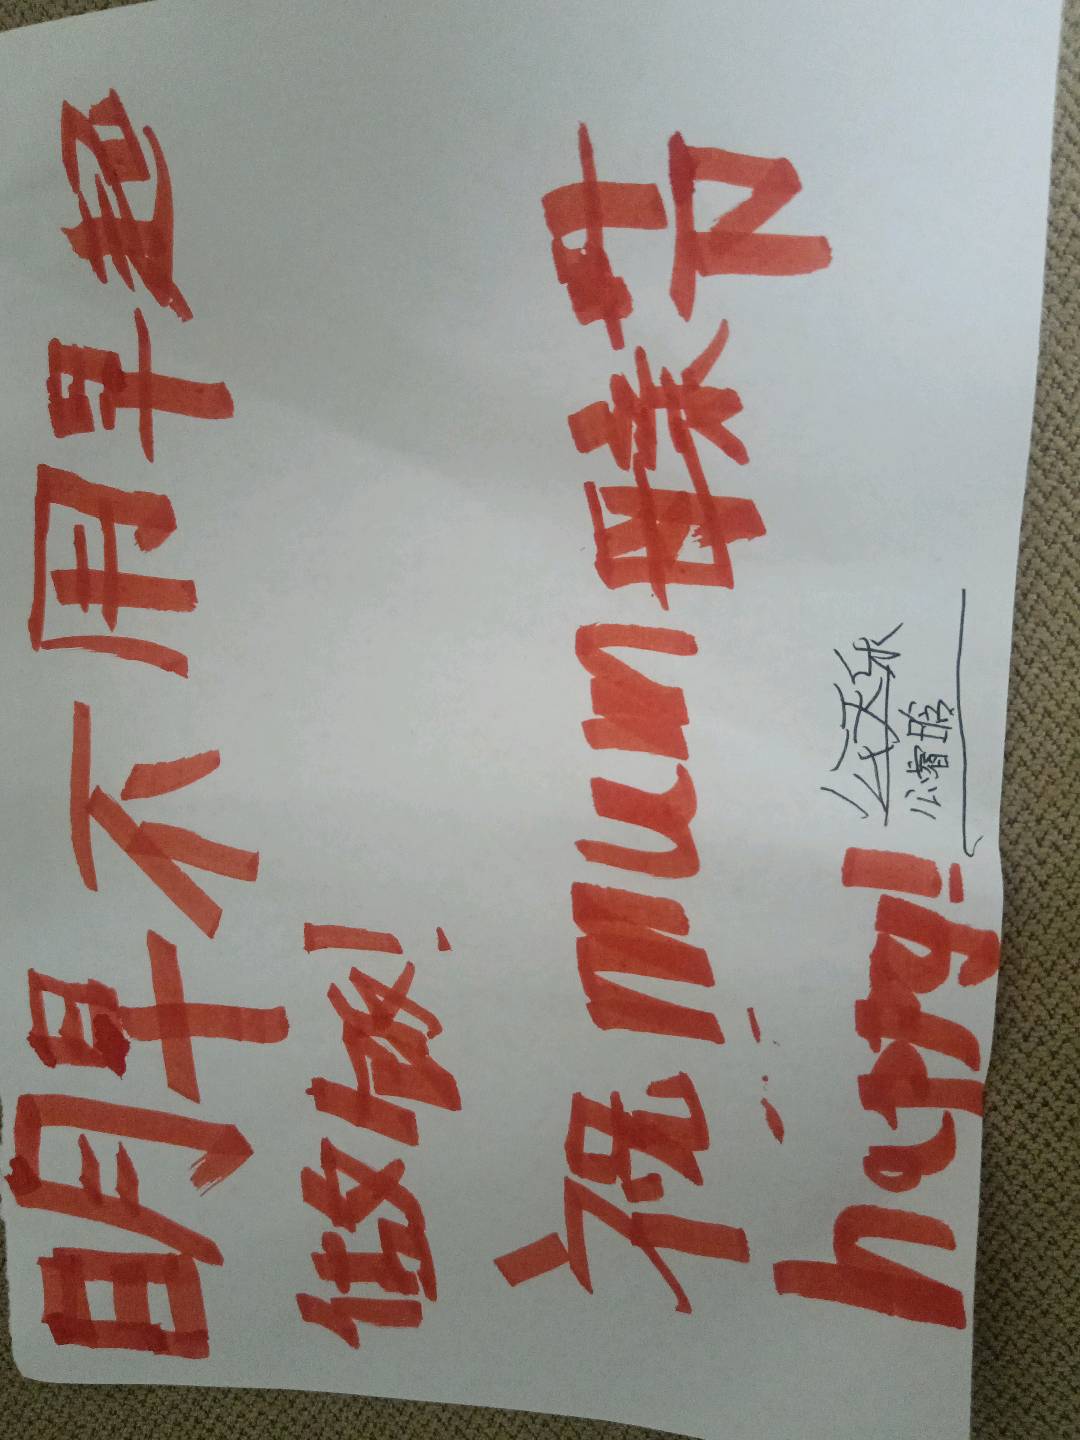 明早不用早起
做饭!
祝mum母亲节
happy!
公天乐
公睿晗